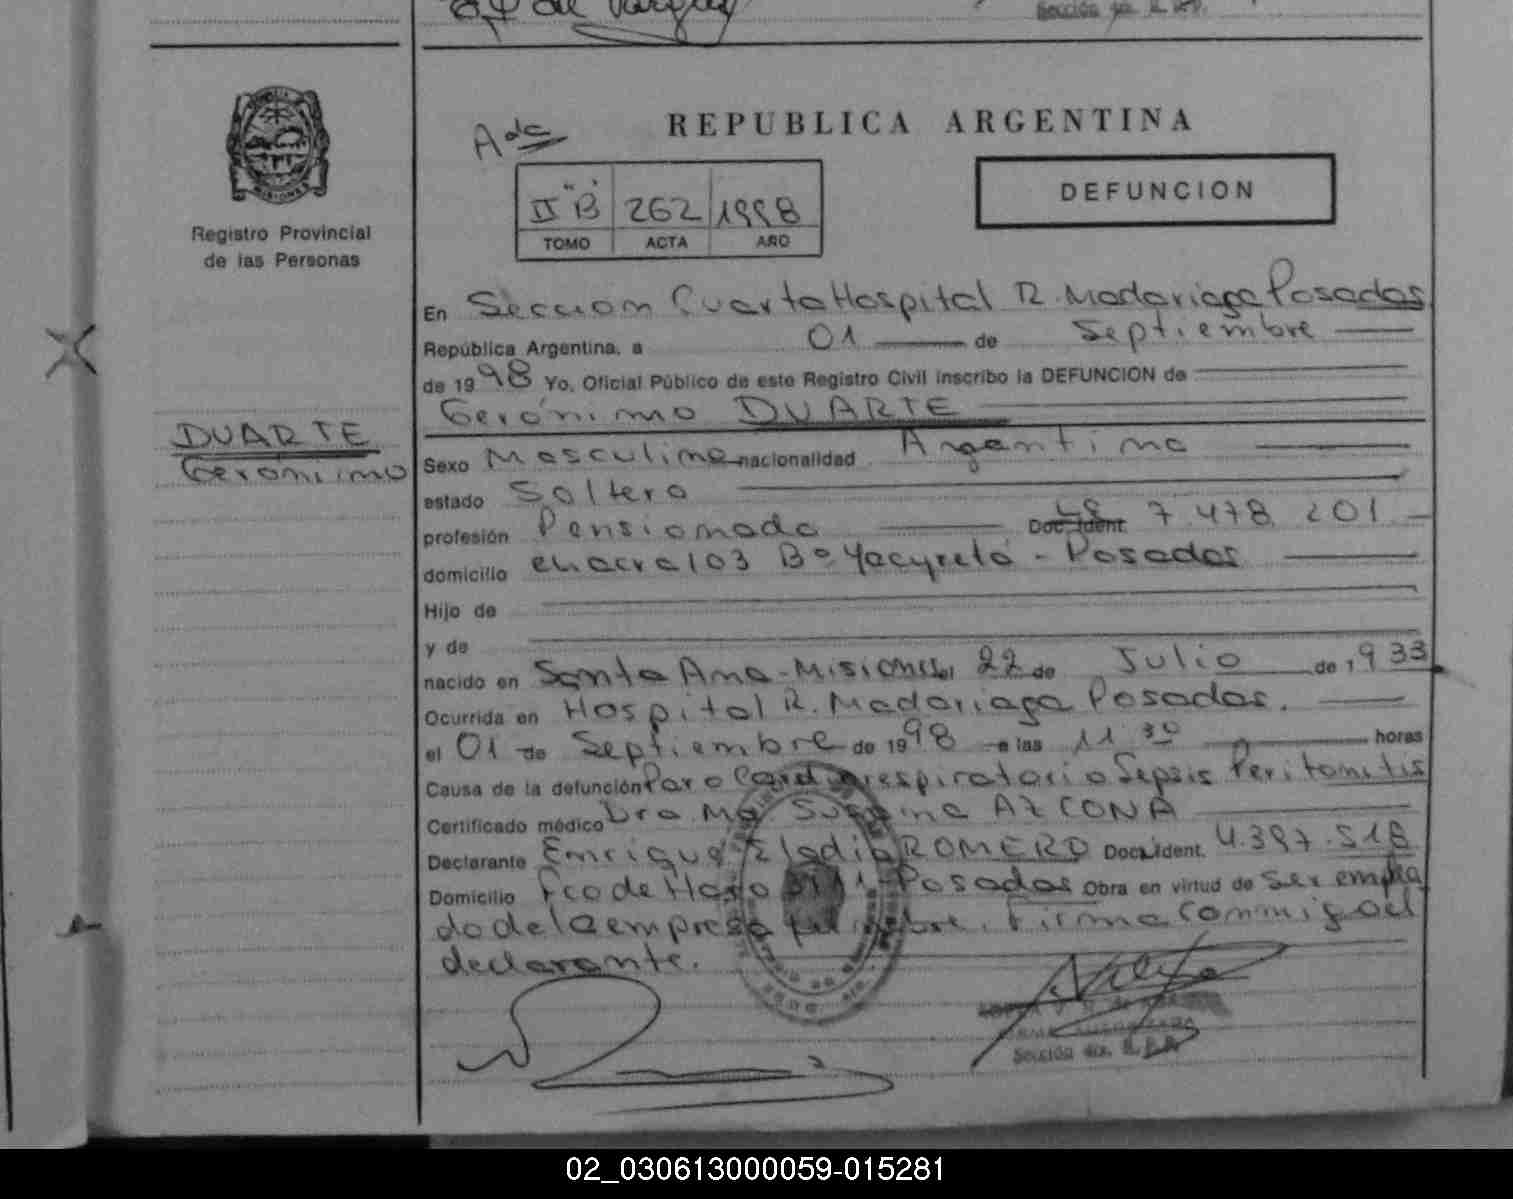 REPUBLICA ARGENTINA
DEFUNCION
II "B" 262 1998
TOMO ACTA AÑO
Registro Provincial
de las Personas
MISIONES
En Sección Cuarta Hospital R. Madariaga Posadas
República Argentina, a 01 de Septiembre
de 1998 Yo, Oficial Público de este Registro Civil inscribo la DEFUNCION de
Gerónimo DUARTE
DUARTE
Gerónimo
Sexo Masculino nacionalidad Argentina
estado Soltero
profesión Pensionado Doc. Ident. 7.478.201
domicilio chacra 103 Bº Yacyretá - Posadas
Hijo de
y de
nacido en Santa Ana - Misiones el 22 de Julio de 1933
Ocurrida en Hospital R. Madariaga Posadas.
el 01 de Septiembre de 1998 a las 11 30 horas
Causa de la defunción Paro Cardiorespiratorio Sepsis Peritonitis
Certificado médico Dra Ma. Susana AZCONA
Declarante Enrique Eladio ROMERO Doc. Ident. 4.397.518
Domicilio Fco de Haro Posadas Obra en virtud de ser emplea
do de la empresa fúnebre. Firma conmigo el
declarante.
Sección 4ta. R.P.P.
02_030613000059-015281